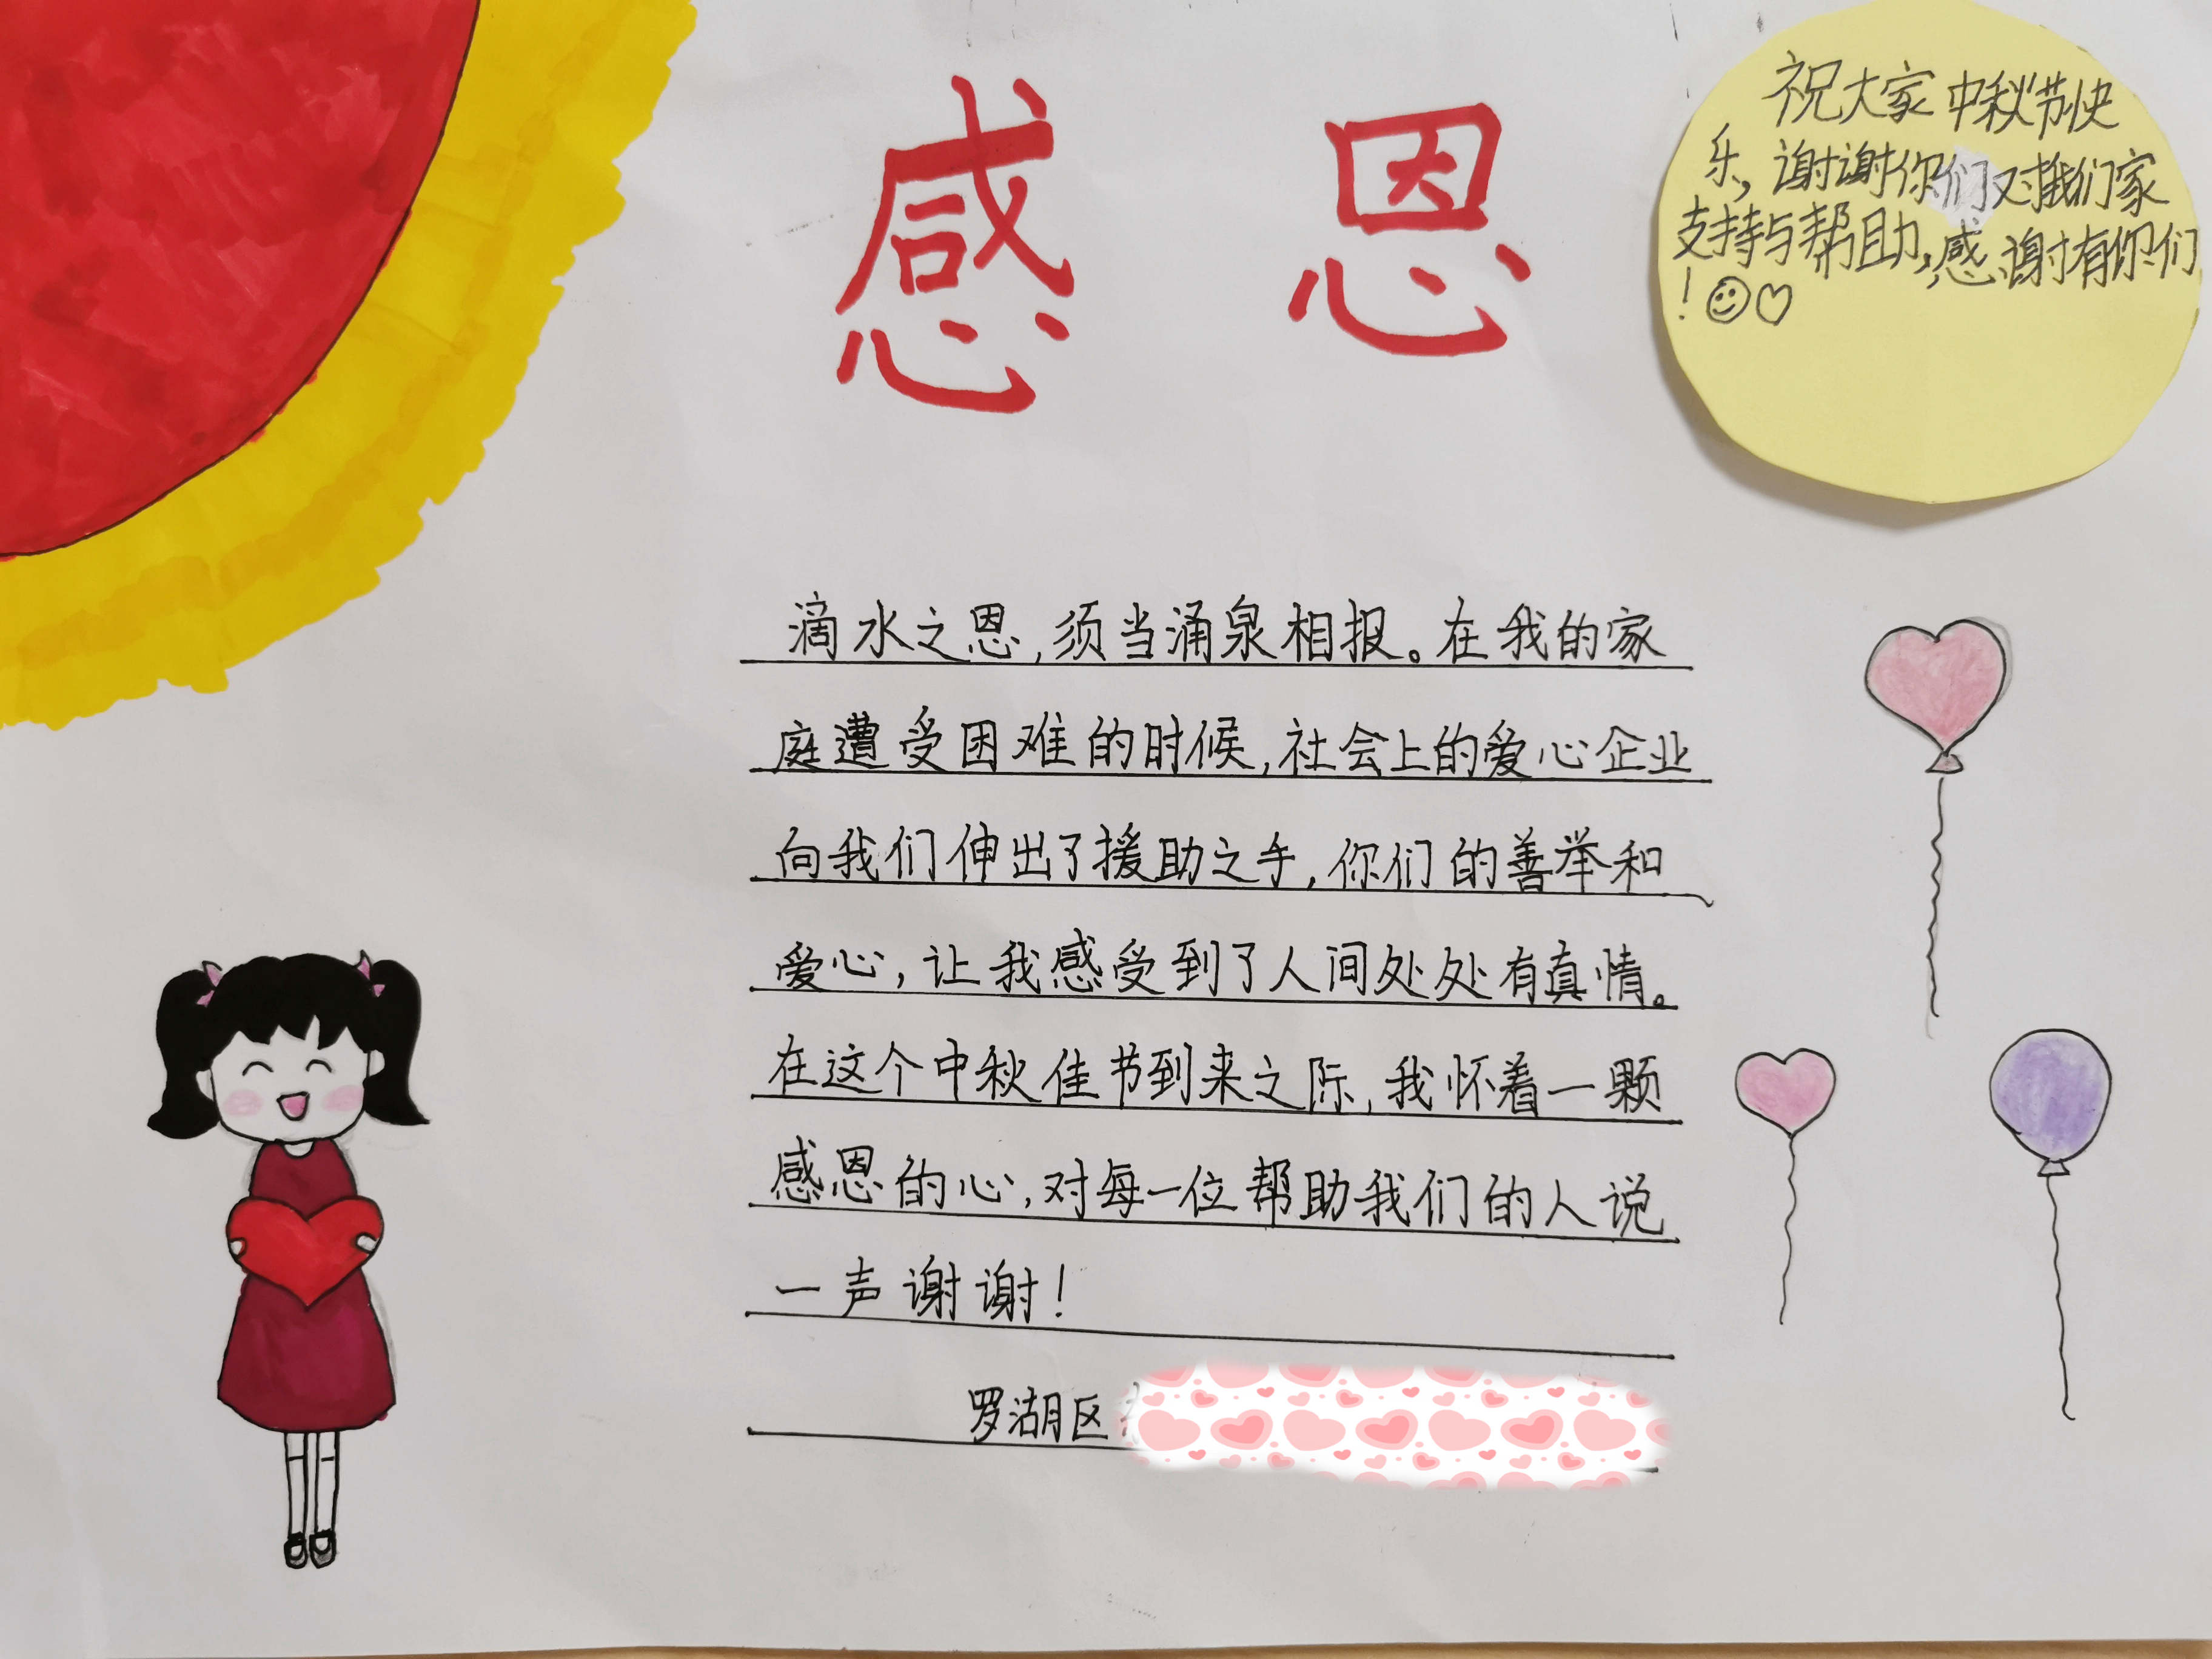 感恩
祝大家中秋节快
乐，谢谢你们对我们家
支持与帮助，感谢有你们
！
滴水之恩，须当涌泉相报。在我的家
庭遭受困难的时候，社会上的爱心企业
向我们伸出了援助之手，你们的善举和
爱心，让我感受到了人间处处有真情。
在这个中秋佳节到来之际，我怀着一颗
感恩的心，对每一位帮助我们的人说
一声谢谢！
罗湖区